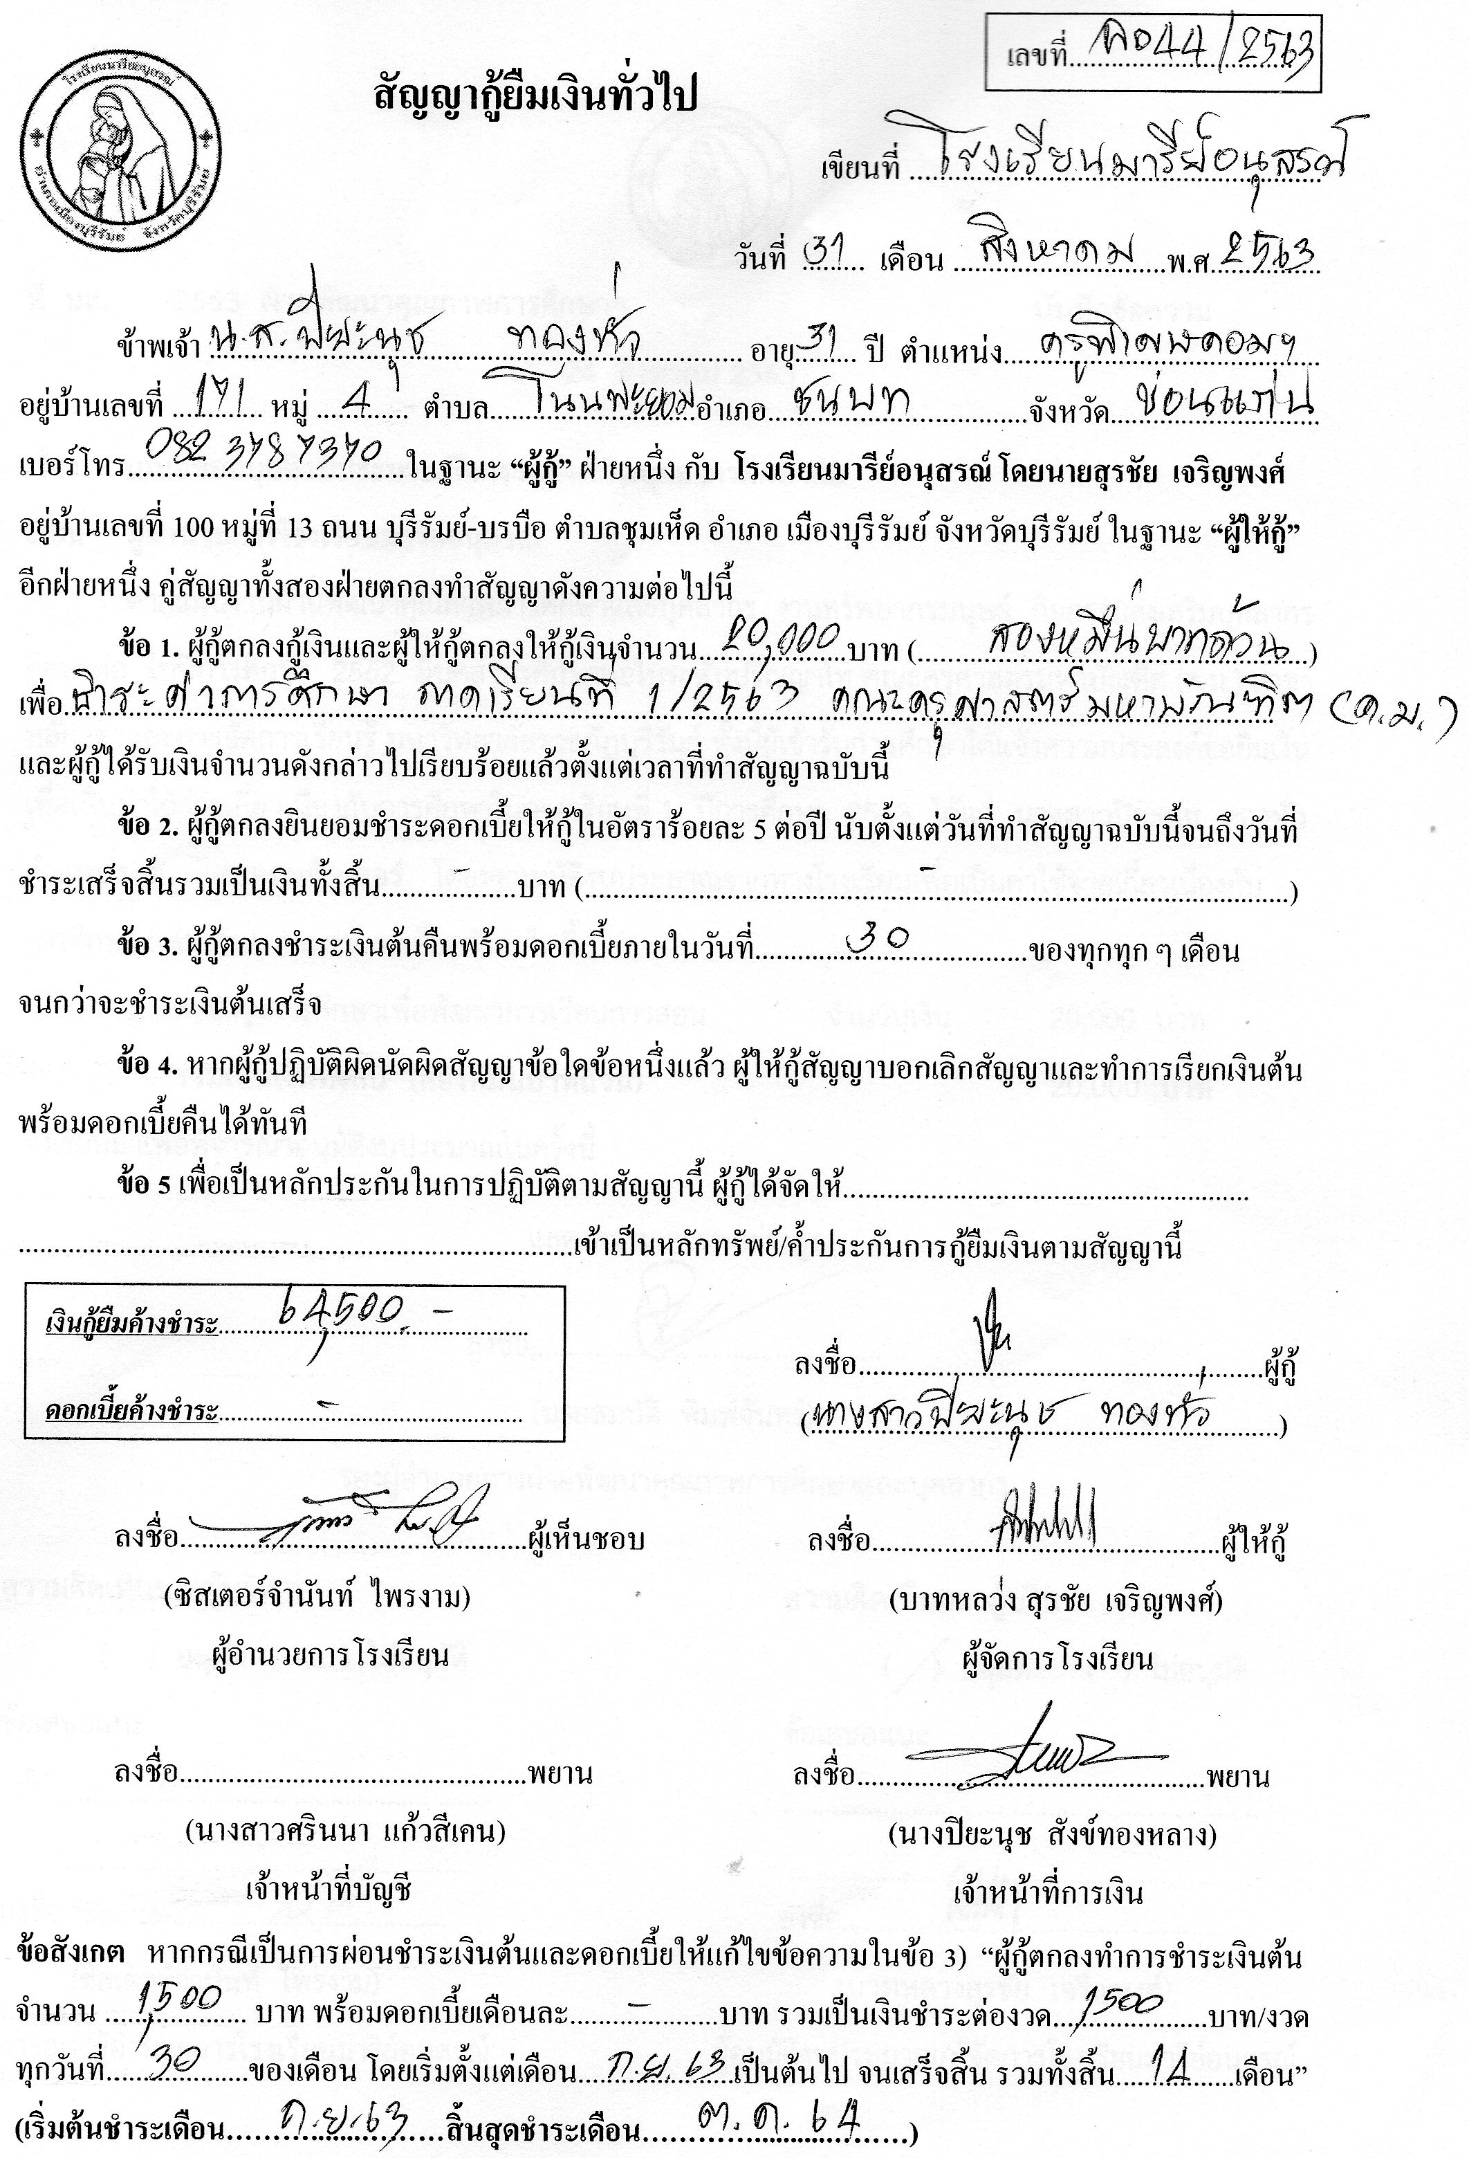 โรงเรียนมารีย์อนุสรณ์
อำเภอเมืองบุรีรัมย์ จังหวัดบุรีรัมย์
เลขที่ 044/2563
สัญญากู้ยืมเงินทั่วไป
เขียนที่ โรงเรียนมารีย์อนุสรณ์
วันที่ 31 เดือน สิงหาคม พ.ศ. 2563
ข้าพเจ้า น.ส.ปิยะนุช ทองหัว อายุ 31 ปี ตำแหน่ง ครูพิเศษคอมฯ
อยู่บ้านเลขที่ 171 หมู่ 4 ตำบล โนนพะยอม อำเภอ ชนบท จังหวัด ขอนแก่น
เบอร์โทร 082 3787370 ในฐานะ “ผู้กู้” ฝ่ายหนึ่ง กับ โรงเรียนมารีย์อนุสรณ์ โดยนายสุรชัย เจริญพงศ์
อยู่บ้านเลขที่ 100 หมู่ที่ 13 ถนน บุรีรัมย์-บรบือ ตำบลชุมเห็ด อำเภอ เมืองบุรีรัมย์ จังหวัดบุรีรัมย์ ในฐานะ “ผู้ให้กู้”
อีกฝ่ายหนึ่ง คู่สัญญาทั้งสองฝ่ายตกลงทำสัญญาดังความต่อไปนี้
ข้อ 1. ผู้กู้ตกลงกู้เงินและผู้ให้กู้ตกลงให้กู้เงินจำนวน 20,000 บาท ( สองหมื่นบาทถ้วน )
เพื่อ ชำระค่าการศึกษา ภาคเรียนที่ 1/2563 คณะครุศาสตร์มหาบัณฑิต (ค.ม.)
และผู้กู้ได้รับเงินจำนวนดังกล่าวไปเรียบร้อยแล้วตั้งแต่เวลาที่ทำสัญญาฉบับนี้
ข้อ 2. ผู้กู้ตกลงยินยอมชำระดอกเบี้ยให้กู้ในอัตราร้อยละ 5 ต่อปี นับตั้งแต่วันที่ทำสัญญาฉบับนี้จนถึงวันที่
ชำระเสร็จสิ้นรวมเป็นเงินทั้งสิ้น - บาท ( - )
ข้อ 3. ผู้กู้ตกลงชำระเงินต้นคืนพร้อมดอกเบี้ยภายในวันที่ 30 ของทุกทุก ๆ เดือน
จนกว่าจะชำระเงินต้นเสร็จ
ข้อ 4. หากผู้กู้ปฏิบัติผิดนัดผิดสัญญาข้อใดข้อหนึ่งแล้ว ผู้ให้กู้สัญญาบอกเลิกสัญญาและทำการเรียกเงินต้น
พร้อมดอกเบี้ยคืนได้ทันที
ข้อ 5 เพื่อเป็นหลักประกันในการปฏิบัติตามสัญญานี้ ผู้กู้ได้จัดให้
เข้าเป็นหลักทรัพย์/ค้ำประกันการกู้ยืมเงินตามสัญญานี้
เงินกู้ยืมค้างชำระ 64,500.-
ดอกเบี้ยค้างชำระ -
ลงชื่อ ผู้กู้
(นางสาวปิยะนุช ทองหัว)
ลงชื่อ ผู้เห็นชอบ ลงชื่อ ผู้ให้กู้
(ซิสเตอร์จำนันท์ ไพรงาม) (บาทหลวง สุรชัย เจริญพงศ์)
ผู้อำนวยการโรงเรียน ผู้จัดการโรงเรียน
ลงชื่อ พยาน ลงชื่อ พยาน
(นางสาวศรินนา แก้วสีเคน) (นางปิยะนุช สังข์ทองหลาง)
เจ้าหน้าที่บัญชี เจ้าหน้าที่การเงิน
ข้อสังเกต หากกรณีเป็นการผ่อนชำระเงินต้นและดอกเบี้ยให้แก้ไขข้อความในข้อ 3) “ผู้กู้ตกลงทำการชำระเงินต้น
จำนวน 1,500 บาท พร้อมดอกเบี้ยเดือนละ - บาท รวมเป็นเงินชำระต่องวด 1,500 บาท/งวด
ทุกวันที่ 30 ของเดือน โดยเริ่มตั้งแต่เดือน ก.ย. 63 เป็นต้นไป จนเสร็จสิ้น รวมทั้งสิ้น 14 เดือน”
(เริ่มต้นชำระเดือน ก.ย.63 สิ้นสุดชำระเดือน ต.ค. 64 )